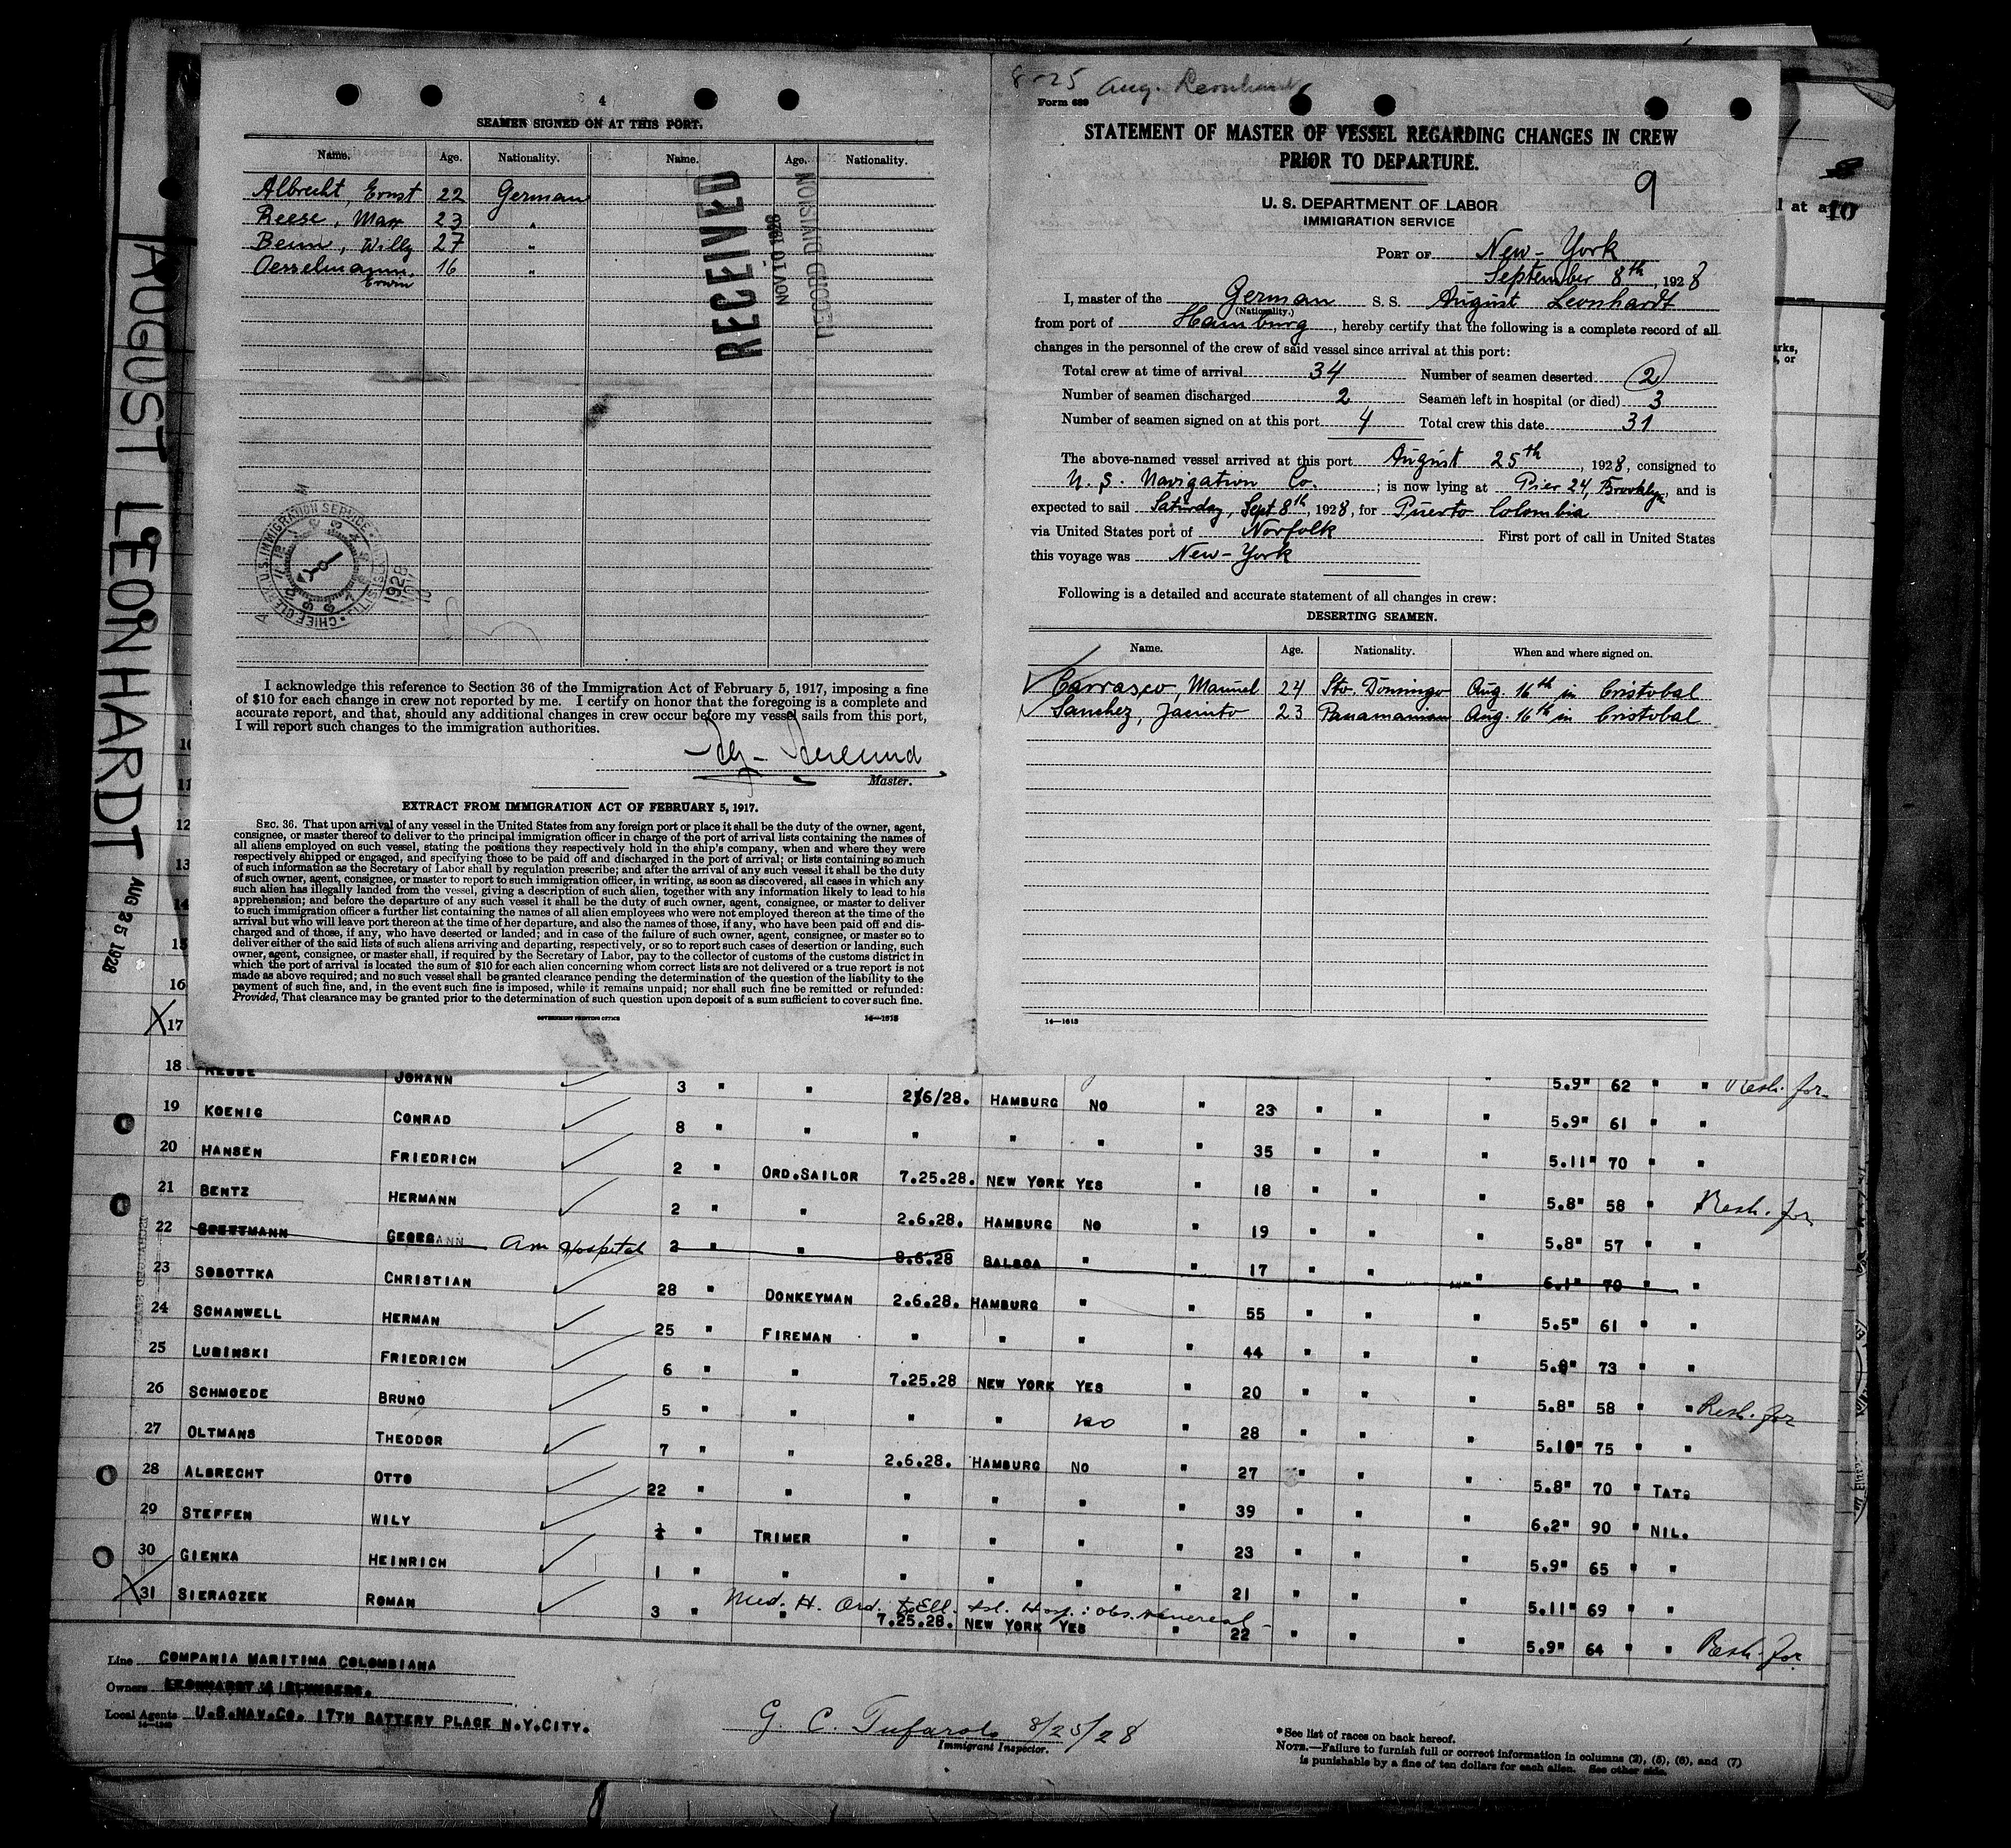 4
SEAMEN SIGNED ON AT THIS PORT.
Name. Age. Nationality. Name. Age. Nationality.
Albrecht, Ernst 22 German
Reese, Max 23 "
Benn, Willy 27 "
Oesselmann, Erwin 16 "
RECEIVED
NOV 10 1928
RECORD DIVISION
CHIEF CLERK U.S. IMMIGRATION SERVICE
1928
NOV
10
I acknowledge this reference to Section 36 of the Immigration Act of February 5, 1917, imposing a fine
of $10 for each change in crew not reported by me. I certify on honor that the foregoing is a complete and
accurate report, and that, should any additional changes in crew occur before my vessel sails from this port,
I will report such changes to the immigration authorities.
Master.
EXTRACT FROM IMMIGRATION ACT OF FEBRUARY 5, 1917.
SEC. 36. That upon arrival of any vessel in the United States from any foreign port or place it shall be the duty of the owner, agent,
consignee, or master thereof to deliver to the principal immigration officer in charge of the port of arrival lists containing the names of
all aliens employed on such vessel, stating the positions they respectively hold in the ship's company, when and where they were
respectively shipped or engaged, and specifying those to be paid off and discharged in the port of arrival; or lists containing so much
of such information as the Secretary of Labor shall by regulation prescribe; and after the arrival of any such vessel it shall be the duty
of such owner, agent, consignee, or master to report to such immigration officer, in writing, as soon as discovered, all cases in which any
such alien has illegally landed from the vessel, giving a description of such alien, together with any information likely to lead to his
apprehension; and before the departure of any such vessel it shall be the duty of such owner, agent, consignee, or master to deliver
to such immigration officer a further list containing the names of all alien employees who were not employed thereon at the time of the
arrival but who will leave port thereon at the time of her departure, and also the names of those, if any, who have been paid off and dis-
charged and of those, if any, who have deserted or landed; and in case of the failure of such owner, agent, consignee, or master so to
deliver either of the said lists of such aliens arriving and departing, respectively, or so to report such cases of desertion or landing, such
owner, agent, consignee, or master shall, if required by the Secretary of Labor, pay to the collector of customs of the customs district in
which the port of arrival is located the sum of $10 for each alien concerning whom correct lists are not delivered or a true report is not
made as above required; and no such vessel shall be granted clearance pending the determination of the question of the liability to the
payment of such fine, and, in the event such fine is imposed, while it remains unpaid; nor shall such fine be remitted or refunded:
Provided, That clearance may be granted prior to the determination of such question upon deposit of a sum sufficient to cover such fine.
GOVERNMENT PRINTING OFFICE 14—1613
8-25 Aug. Leonhardt
Form 689
STATEMENT OF MASTER OF VESSEL REGARDING CHANGES IN CREW
PRIOR TO DEPARTURE.
9
U. S. DEPARTMENT OF LABOR
IMMIGRATION SERVICE
PORT OF New-York
September 8th, 1928
I, master of the German S. S. August Leonhardt
(Nationality.)
from port of Hamburg, hereby certify that the following is a complete record of all
changes in the personnel of the crew of said vessel since arrival at this port:
Total crew at time of arrival 34 Number of seamen deserted 2
Number of seamen discharged 2 Seamen left in hospital (or died) 3
Number of seamen signed on at this port 4 Total crew this date 31
The above-named vessel arrived at this port August 25th, 1928, consigned to
U. S. Navigation Co.; is now lying at Pier 24, Brooklyn, and is
expected to sail Saturday, Sept 8th, 1928, for Puerto Colombia
via United States port of Norfolk First port of call in United States
this voyage was New-York
Following is a detailed and accurate statement of all changes in crew:
DESERTING SEAMEN.
Name. Age. Nationality. When and where signed on.
Carrasco, Manuel 24 Sto. Domingo Aug. 16th in Cristobal
Sanchez, Jacinto 23 Panamanian Aug. 16th in Cristobal
14—1613
l at a 10
AUGUST LEONHARDT AUG 25 1928
10
11
12
13
14
15
16
17
18 JOHANN 3 " " 2/6/28. HAMBURG NO " 23 " " " 5.9" 62 " "
19 KOENIG CONRAD 8 " " " " " " 35 " " " 5.9" 61 " "
20 HANSEN FRIEDRICH 2 " ORD.SAILOR 7.25.28. NEW YORK YES " 18 " " " 5.11" 70 " "
21 BENTZ HERMANN 2 " " 2.6.28. HAMBURG NO " 19 " " " 5.8" 58 " "
22 GEORG Am Hospital 2 " " 8.6.28 BALBOA " " 17 " " " 5.8" 57 " "
23 SOBOTTKA CHRISTIAN 28 " DONKEYMAN 2.6.28. HAMBURG " " 55 " " " 6.1" 70 "
24 SCHANWELL HERMAN 25 " FIREMAN " " " " 44 " " " 5.5" 61 " "
25 LUBINSKI FRIEDRICH 6 " " 7.25.28 NEW YORK YES " 20 " " " 73 " "
26 SCHMOEDE BRUNO 5 " " " " NO " 28 " " " 5.8" 58 " "
27 OLTMANS THEODOR 7 " " 2.6.28. HAMBURG NO " 27 " " " 5.10" 75 " "
28 ALBRECHT OTTO 22 " " " " " " 39 " " " 5.8" 70 " TAT.
29 STEFFEN WILY " TRIMER " " " " 23 " " " 6.2" 90 " NIL.
30 GIENKA HEINRICH 1 " " " " " " 21 " " " 5.9" 65 " "
31 SIERACZEK ROMAN 3 " " 7.25.28. NEW YORK YES " 22 " " " 5.11" 69 " "
Med. H. Ord. to Ell. Isl. Hosp.: obs. venereal
5.9" 64 " "
Line COMPANIA MARITIMA COLOMBIANA
Owners LEONHARDT & BLUMBERG.
Local Agents U.S.NAV.CO. 17TH BATTERY PLACE N.Y.CITY.
G. C. Tufarolo 8/25/28
Immigrant Inspector.
*See list of races on back hereof.
NOTE.—Failure to furnish full or correct information in columns (2), (5), (6), and (7)
is punishable by a fine of ten dollars for each alien. See other side.